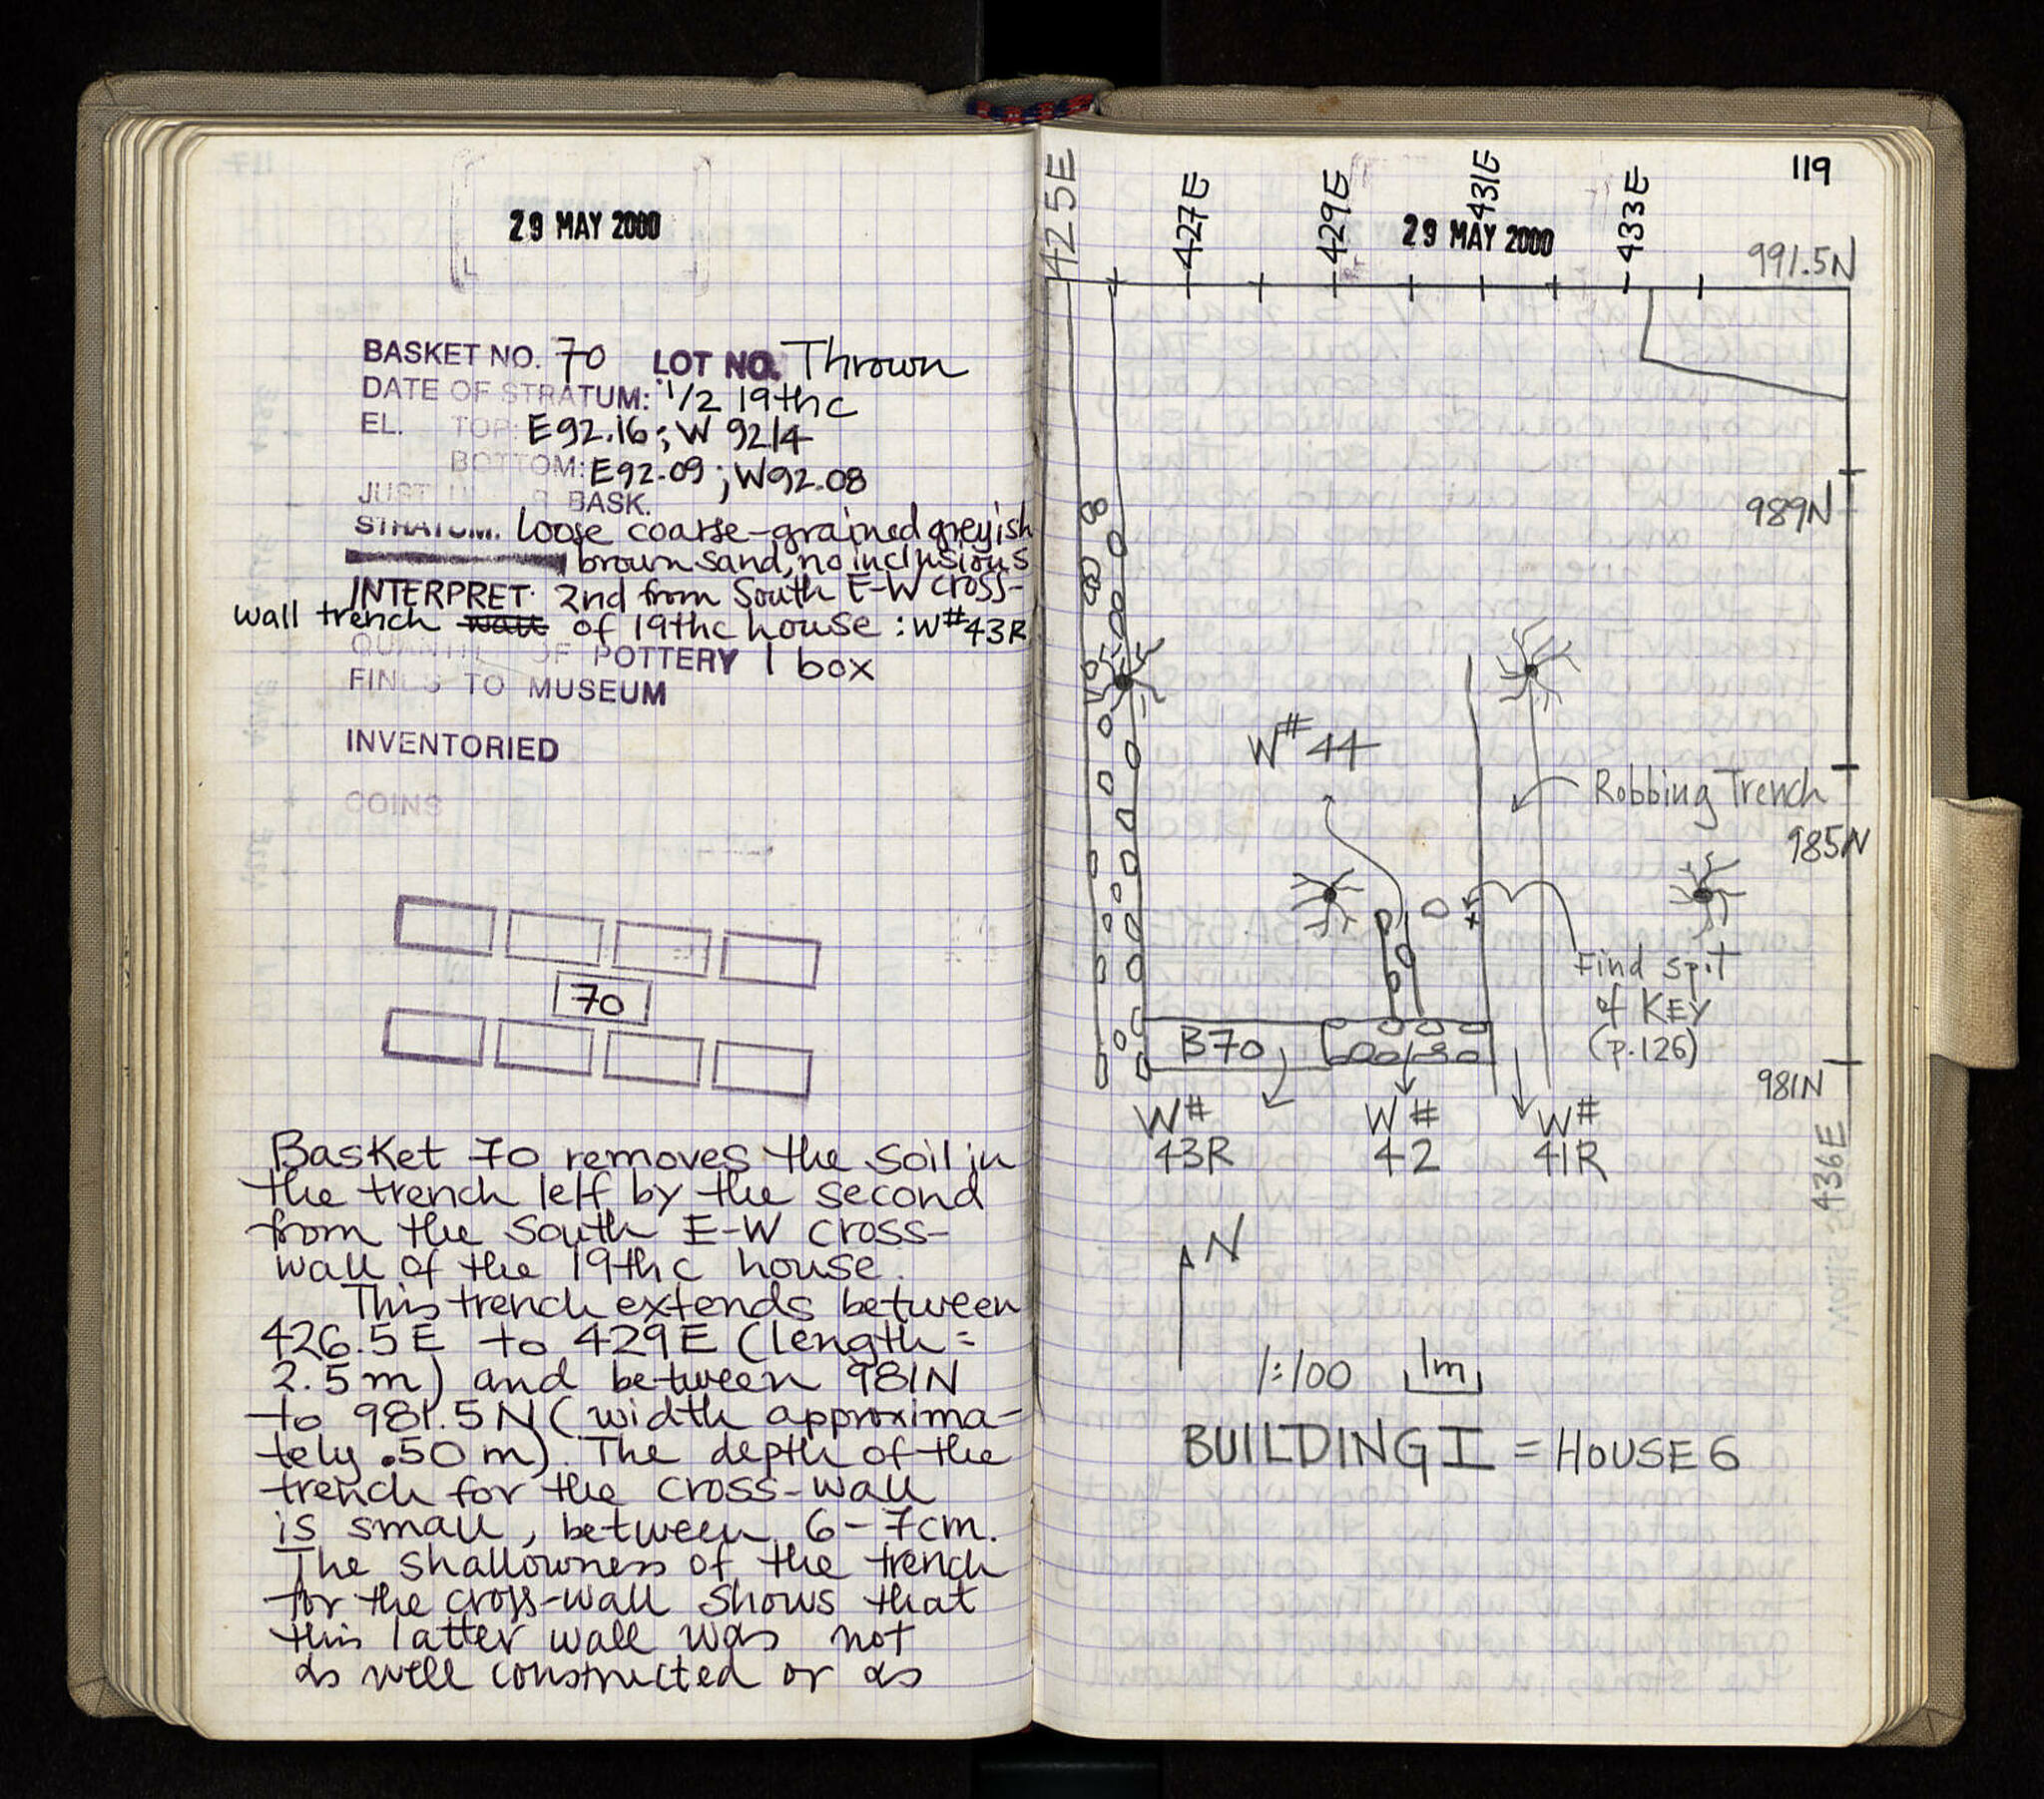 29 MAY 2000
BASKET NO. 70 LOT NO. Thrown
DATE OF STRATUM: 1/2 19thc
EL. TOP: E92.16; W 92.14
BOTTOM: E92.09; W92.08
BASK.
STRATUM. loose coarse-grained greyish
brown sand, no inclusions
INTERPRET: 2nd from South E-W cross-
wall trench wall of 19thc house: W#43R
QUANTITY OF POTTERY 1 box
FINDS TO MUSEUM
INVENTORIED
COINS
70
Basket 70 removes the soil in
the trench left by the second
from the South E-W cross-
wall of the 19th c house.
This trench extends between
426.5E to 429E (length =
2.5m) and between 981N
to 981.5N (width approxima-
tely .50m). The depth of the
trench for the cross-wall
is small, between 6-7cm.
The shallowness of the trench
for the cross-wall shows that
this latter wall was not
as well constructed or as
119
425E 427E 429E 431E 433E
29 MAY 2000
991.5N
989N
W#44
Robbing Trench
985N
Find spit
of KEY
(p.126)
B70
981N
W#
43R
W#
42
W#
41R
436E
N
1:100 1m
BUILDING I = HOUSE 6